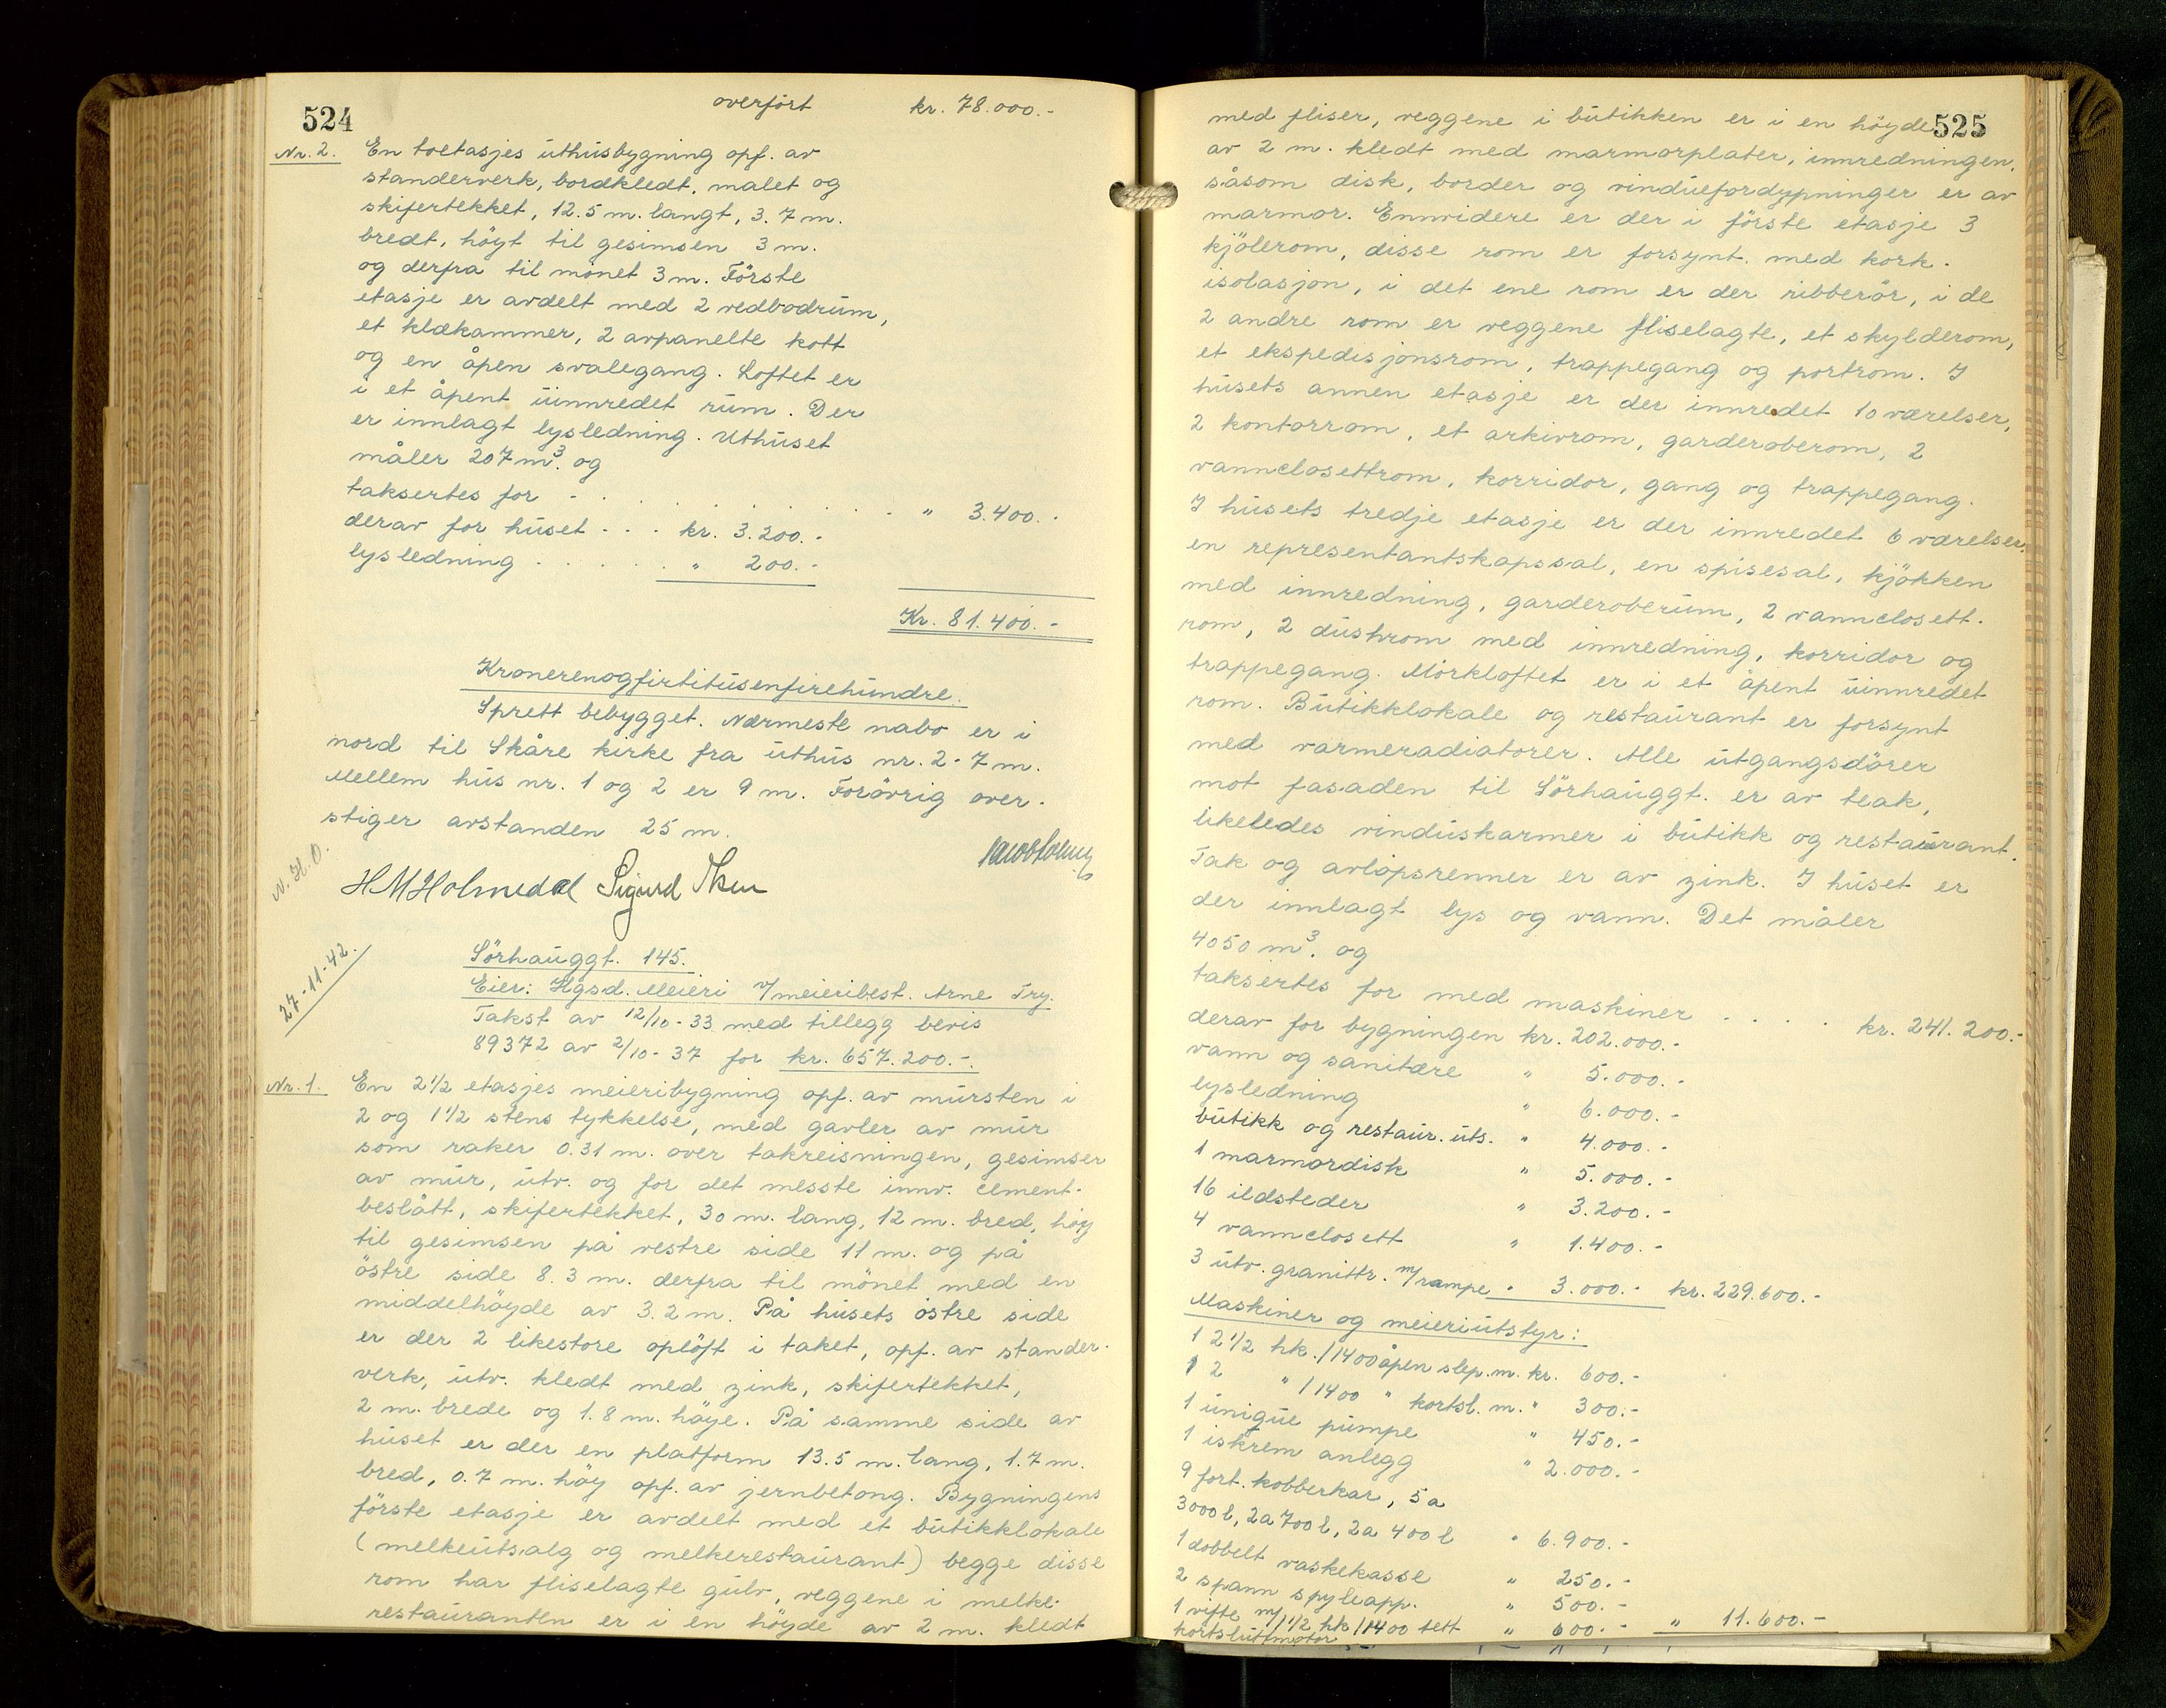 524
overfört kr. 78.000.-
Nr. 2. En toetasjes uthusbygning opf. av
standerverk, bordkledt, malet og
skifertekket, 12.5 m. langt, 3.7 m.
bredt, höyt til gesimsen 3 m.
og derfra til mönet 3 m. Förste
etasje er avdelt med 2 vedbodrum,
et klækammer, 2 avpanelte kott
og en åpen svalegang. Loftet er
i et åpent uinnredet rum. Der
er innlagt lysledning. Uthuset
måler 207 m³. og
taksertes for - . . . . . . . . " 3.400.-
derav for huset - - . kr. 3.200.-
lysledning . . . . . . " 200.-
Kr. 81.400.-
Kronerenogfirtitusenfirehundre.
Sprett bebygget. Nærmeste nabo er i
nord til Skåre kirke fra uthus nr. 2 - 7 m.
Mellem hus nr. 1 og 2 er 9 m. Forövrig over-
stiger avstanden 25 m.
N. H. O.
H M Holmedal Sigurd
27-11-42.
Sörhauggt. 145.
Eier: Hgsd. Meieri v/meieribest. Arne Try.
Takst av 12/10-33 med tillegg bevis
89372 av 2/10-37 for kr. 657.200.-
Nr. 1. En 2 1/2 etasjes meieribygning opf. av mursten i
2 og 1 1/2 stens tykkelse, med gavler av mur
som raker 0.31 m. over takreisningen, gesimser
av mur, utv. og for det messte innv. cement-
beslått, skifertekket, 30 m. lang, 12 m. bred, höy
til gesimsen på vestre side 11 m. og på
östre side 8.3 m. derfra til mönet med en
middelhöyde av 3.2 m. På husets östre side
er der 2 likestore oplöft i taket, opf. av stander-
verk, utv. kledt med zink, skifertekket,
2 m. brede og 1.8 m. höye. På samme side av
huset er der en platform 13.5 m. lang, 1.7 m.
bred, 0.7 m. höy opf. av jernbetong. Bygningens
förste etasje er avdelt med et butikklokale
(melkeutsalg og melkerestaurant) begge disse
rom har fliselagte gulv, veggene i melke-
restauranten er i en höyde av 2 m. kledt
525
med fliser, veggene i butikken er i en höyde
av 2 m. kledt med marmorplater, innredningen,
såsom disk, border og vinduefordypninger er av
marmor. Ennvidere er der i förste etasje 3
kjölerom, disse rom er forsynt. med kork-
isolasjon, i det ene rom er der ribberör, i de
2 andre rom er veggene fliselagte, et skylderom,
et ekspedisjonsrom, trappegang og portrom. I
husets annen etasje er der innredet 10 værelser,
2 kontorrom, et arkivrom, garderoberom, 2
vannclosettrom, korridor, gang og trappegang.
I husets tredje etasje er der innredet 6 værelser,
en representantskapssal, en spisesal, kjökken
med innredning, garderoberum, 2 vannclosett-
rom, 2 dushrom med innredning, korridor og
trappegang. Mörkloftet er i et åpent uinnredet
rom. Butikklokale og restaurant er forsynt
med varmeradiatorer. Alle utgangsdörer
mot fasaden til Sörhauggt. er av teak,
likeledes vinduskarmer i butikk og restaurant.
Tak og avlöpsrenner er av zink. I huset er
der innlagt lys og vann. Det måler
4050 m³. og
taksertes for med maskiner - . . . kr. 241.200.-
derav for bygningen kr. 202.000.-
vann og sanitære " 5.000.-
lysledning " 6.000.-
butikk og restaur. uts. " 4.000.-
1 marmordisk " 5.000.-
16 ildsteder " 3.200.-
4 vannclosett " 1.400.-
3 utv. granittr. m/rampe " 3.000.- kr. 229.600.-
Maskiner og meieriutstyr:
1 2 1/2 hk. /1400 åpen slep. m. kr. 600.-
1 2 " /1400 " kortsl. m. " 300.-
1 unique pumpe " 450.-
1 iskrem anlegg " 2.000.-
9 fort. kobberkar, 5 a
3000 l, 2 a 700 l, 2 a 400 l " 6.900.-
1 dobbelt vaskekasse " 250.-
2 spann spyleapp. " 500.-
1 vifte m/1 1/2 hk /1400 tett " 600.- " 11.600.-
kortsluttmotor